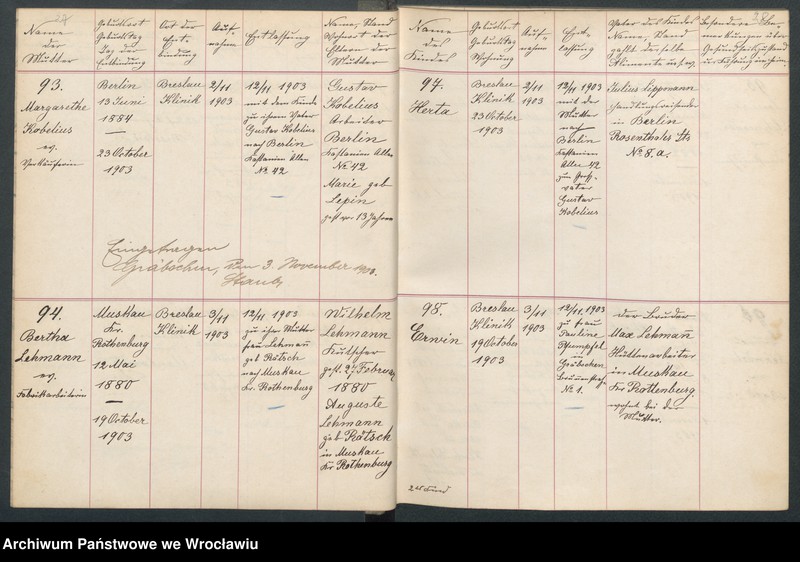 Name
der
Mütter
Geburtsort
Geburtstag
Tag der
Entbindung
Ort der
Ent-
bindung
Auf-
nahme
Entlassung
Name, Stand
Wohnort der
Eltern der
Mutter
Name
des
Kindes
Geburtsort
Geburtstag
Wohnung
Auf-
nahme
Ent-
lassung
Vater des Kindes
Name, Stand
zahlt derselbe
Alimente u.s.w.
Besondere Be-
merkungen über
Gesundheitszustand
93.
Margarethe
Kobelius
ev.
Verkäuferin
Berlin
13 Juni
1884
—
23 October
1903
Breslau
Klinik
2/11
1903
12/11 1903
mit dem Kinde
zu ihrem Vater
Gustav Kobelius
nach Berlin
Kastanien Allee
No 42
Gustav
Kobelius
Arbeiter
Berlin
Kastanien Allee
No 42
Marie geb
Lepin
gest. vor 13 Jahren
97.
Herta
Breslau
Klinik
23 October
1903
2/11
1903
12/11 1903
mit der
Mutter
nach
Berlin
Kastanien
Allee 42
zum Groß-
vater
Gustav
Kobelius
Julius Lippmann
Handlungsreisender
in Berlin
Rosenthaler Str
No 8. a.
Eingetragen
Gräbschen, den 3. November 1903.
94.
Bertha
Lehmann
ev.
Fabrikarbeiterin
Muskau
Kr.
Rothenburg
12 Mai
1880
—
19 October
1903
Breslau
Klinik
3/11
1903
12/11 1903
zu ihrer Mutter
frau Lehmann
geb Rätsch
nach Muskau
Kr. Rothenburg
Wilhelm
Lehmann
Kutscher
gest. 27 Februar
1880
Auguste
Lehmann
geb Rätsch
in Muskau
Kr Rothenburg
98.
Erwin
Breslau
Klinik
19 October
1903
3/11
1903
12/11. 1903
zu frau
Pauline
Pfumpfel
in
Gräbschen
No 1.
der Bruder
Max Lehmann
Hüttenarbeiter
in Muskau
Kr Rothenburg.
wohnt bei der
Mutter.
2tes Kind
Archiwum Państwowe we Wrocławiu